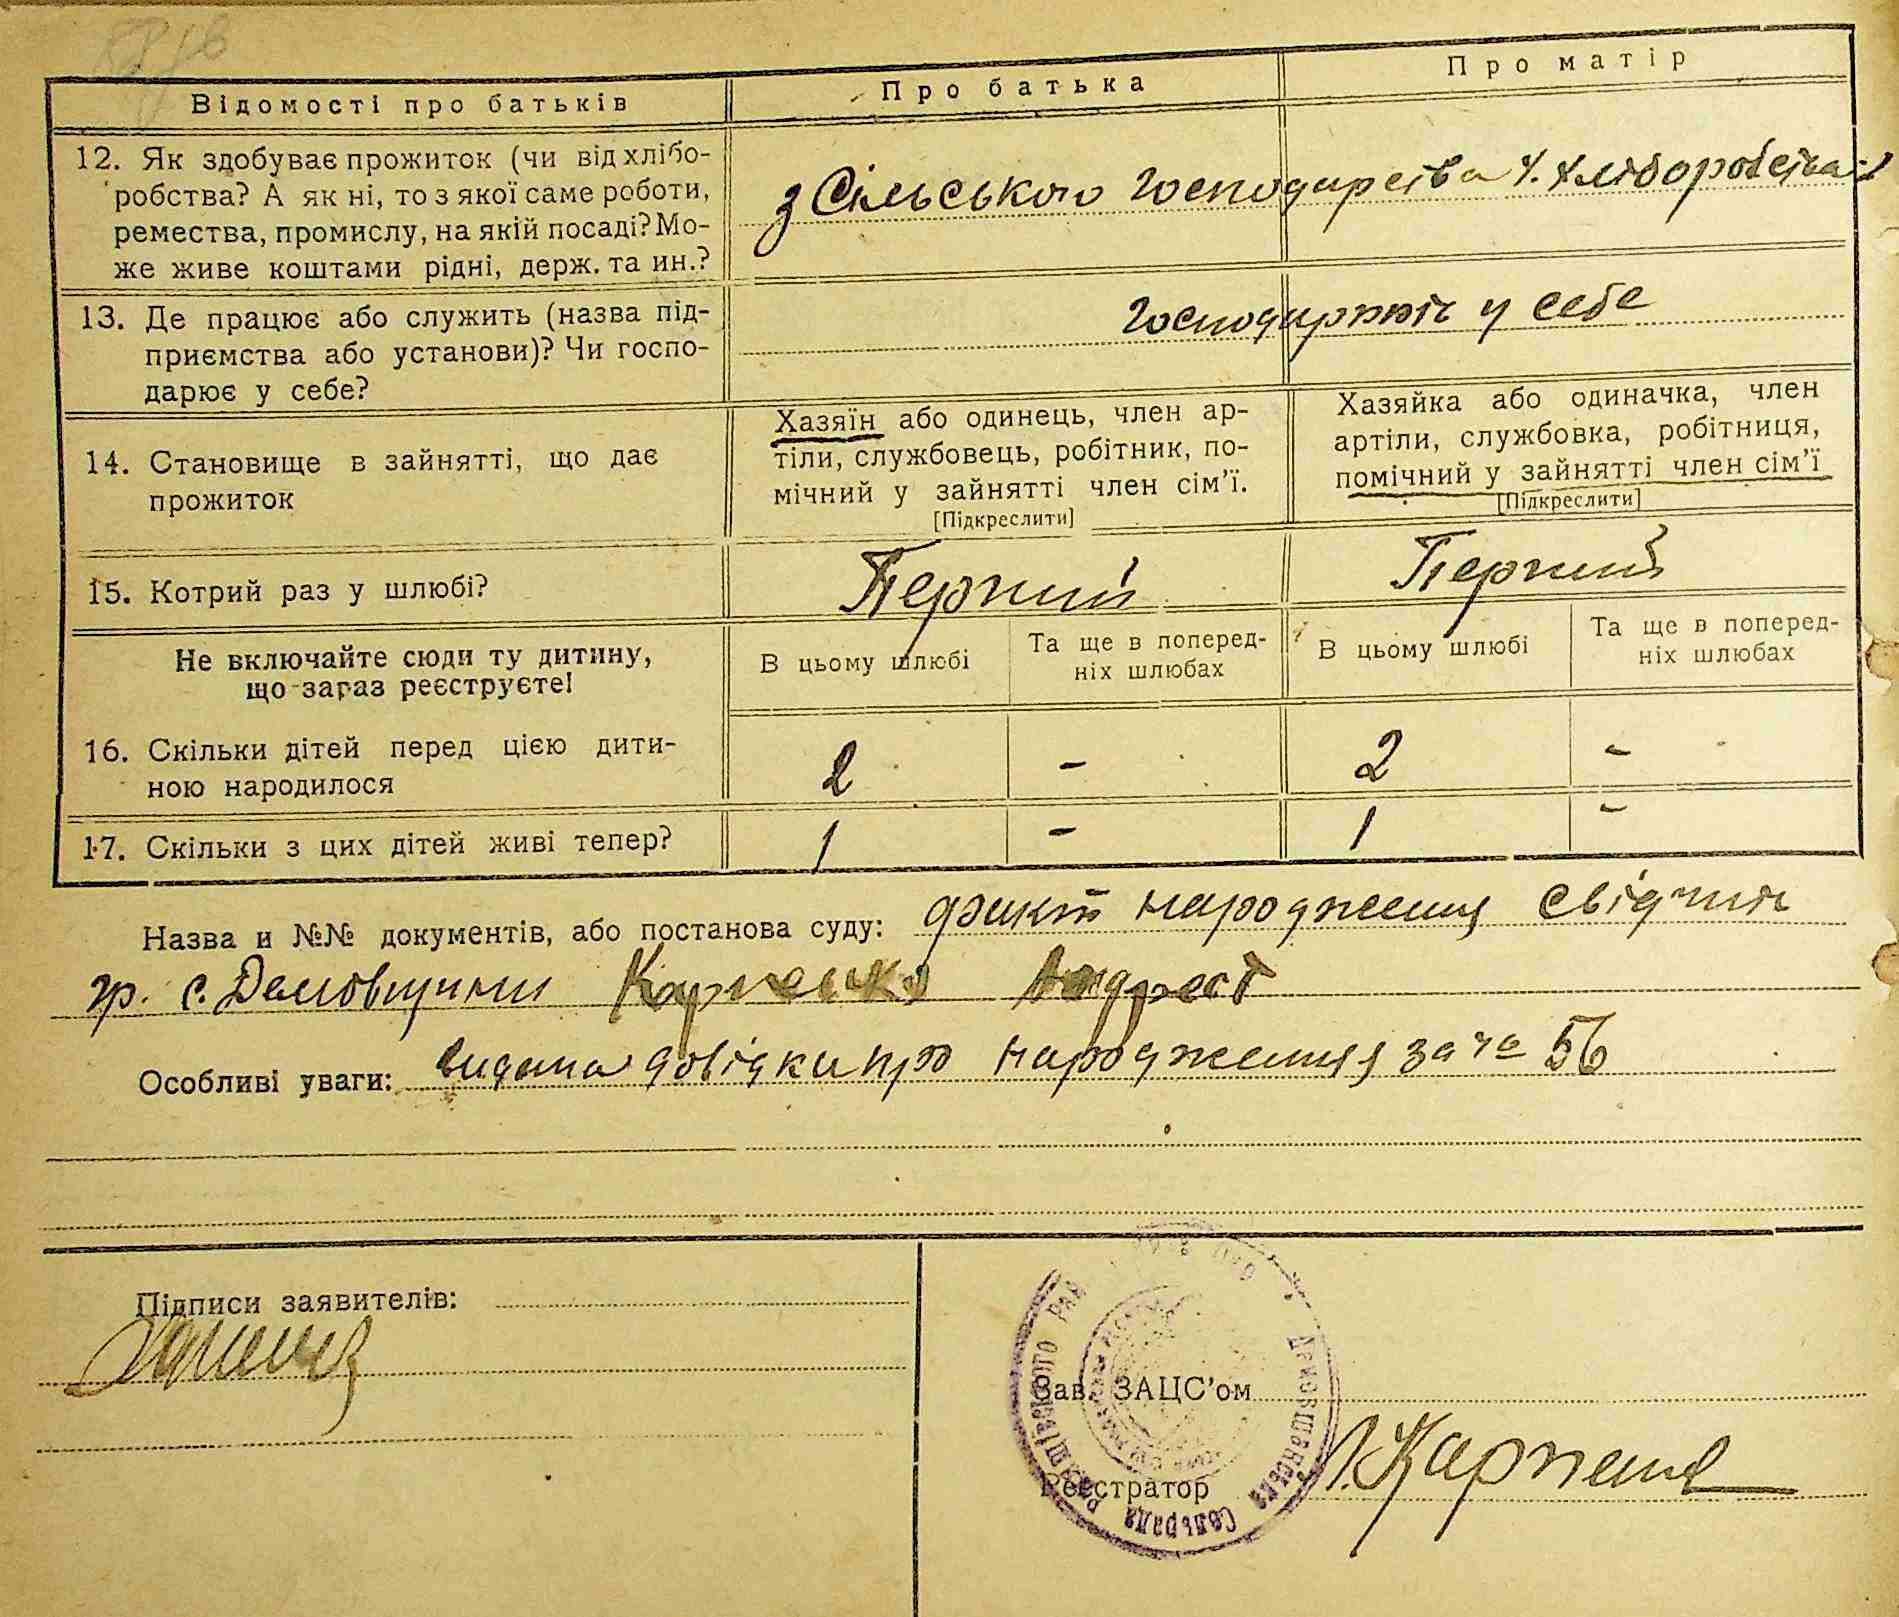 Відомості про батьків
Про батька
Про матір
12. Як здобуває прожиток (чи від хлібо-
робства? А як ні, то з якої саме роботи,
ремества, промислу, на якій посаді? Мо-
же живе коштами рідні, держ. та ин.?
з Сільського господарства
13. Де працює або служить (назва під-
приємства або установи)? Чи госпо-
дарює у себе?
у себе
14. Становище в зайнятті, що дає
прожиток
Хазяїн або одинець, член ар-
тіли, службовець, робітник, по-
мічний у зайнятті член сім'ї.
[Підкреслити]
Хазяйка або одиначка, член
артіли, службовка, робітниця,
помічний у зайнятті член сім'ї
[Підкреслити]
15. Котрий раз у шлюбі?
Перший
Перший
Не включайте сюди ту дитину,
що зараз реєструєте!
В цьому шлюбі
Та ще в поперед-
ніх шлюбах
В цьому шлюбі
Та ще в поперед-
ніх шлюбах
16. Скільки дітей перед цією дити-
ною народилося
2 - 2 -
17. Скільки з цих дітей живі тепер?
1 - 1 -
Назва и №№ документів, або постанова суду: факт народження свідчить
гр. с. Демовщини Карпенко
Особливі уваги: видана довідка про народження за № 56
Підписи заявителів:
Зав. ЗАЦС'ом
Реєстратор
Сельрада